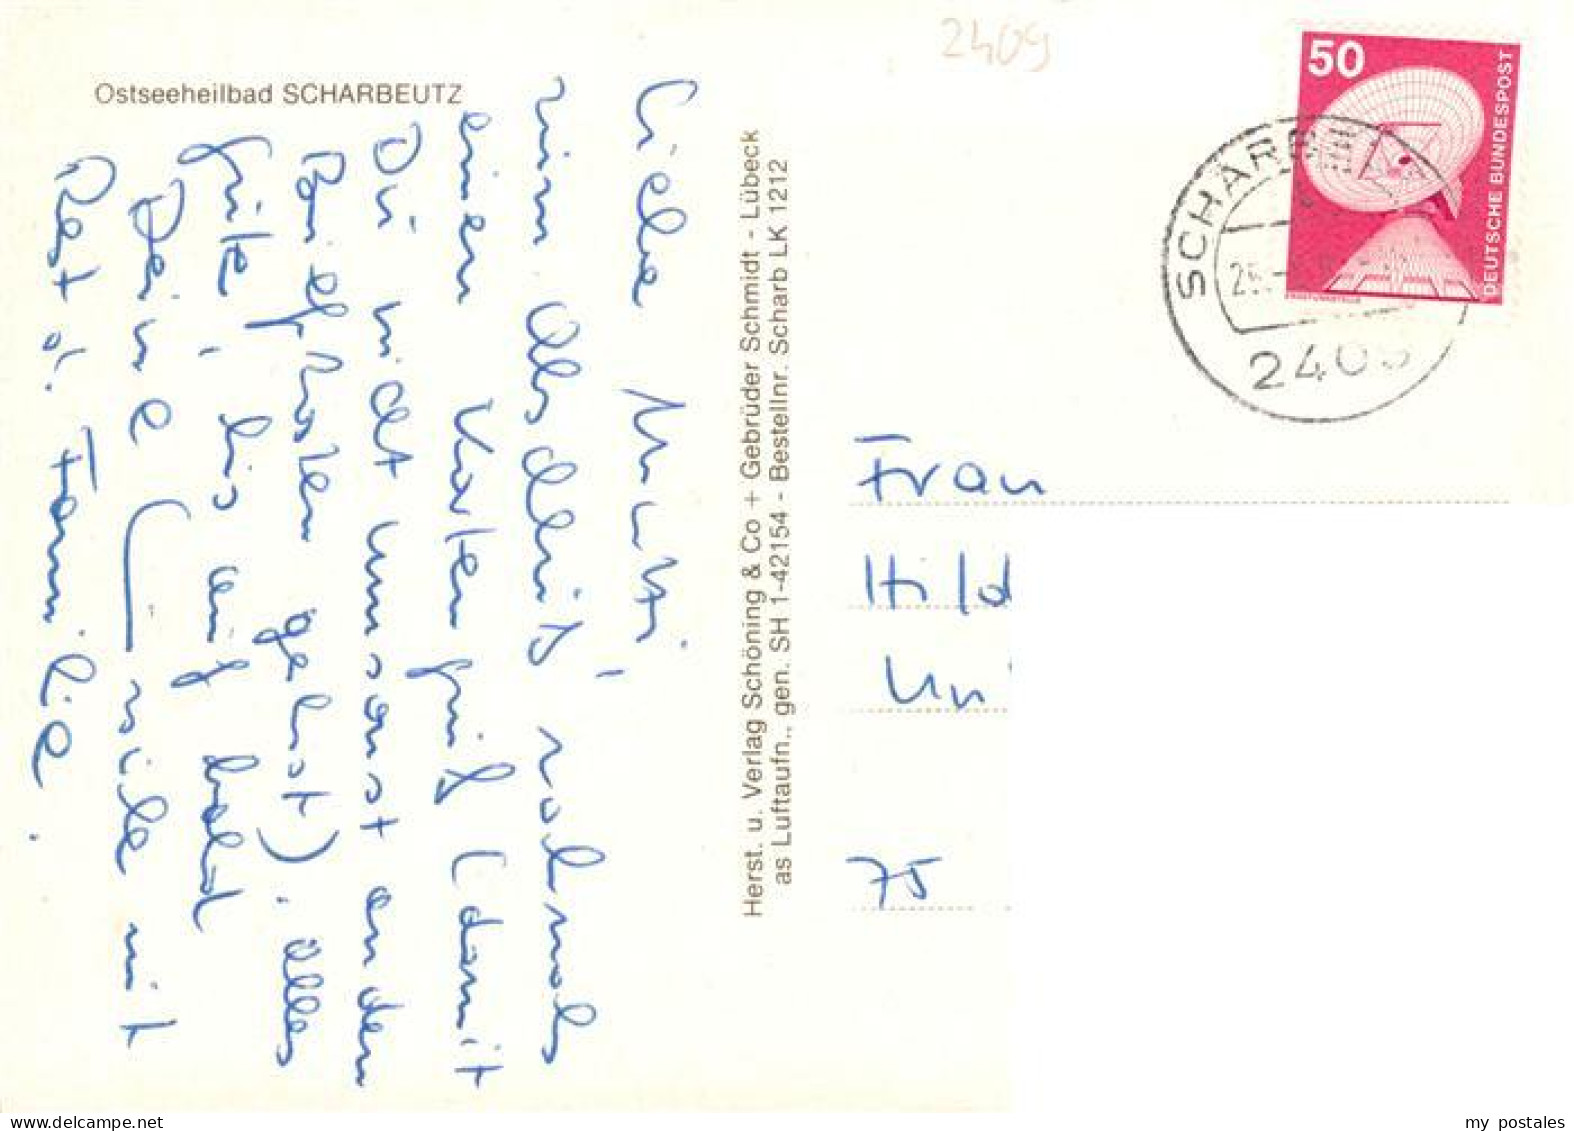 Ostseeheilbad SCHARBEUTZ
Liebe Mutti,
zum Abschluß nochmals
einen Kartengruß (damit
Du nicht umsonst an den
Briefkasten gehst). Alles
Gute, bis auf bald
Deine
mit
Rest d. Familie.
Herst. u. Verlag Schöning & Co + Gebrüder Schmidt - Lübeck
as Luftaufn., gen. SH 1-42154 - Bestellnr. Scharb LK 1212
2409
50
DEUTSCHE BUNDESPOST
SCHARB
25.
2409
Frau
Hild
Un
75
164
my postales